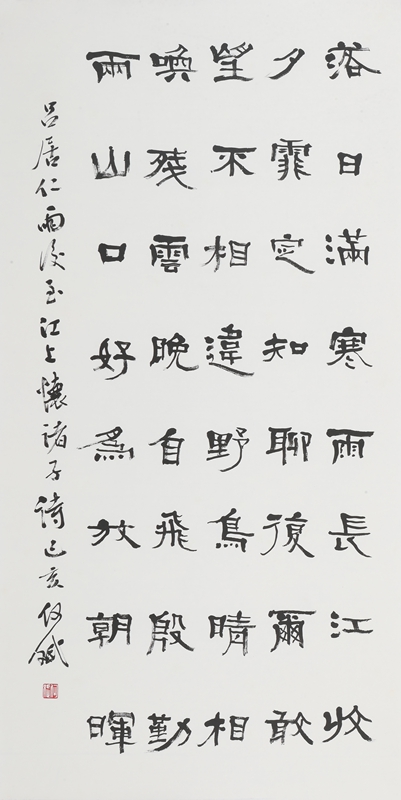 落日滿寒雨長江收
夕霏定知聊復爾敢
望不相違野鳥晴相
喚殘雲晚自飛殷勤
兩山口好為放朝暉
呂居仁雨後至江上懷諸子詩己亥